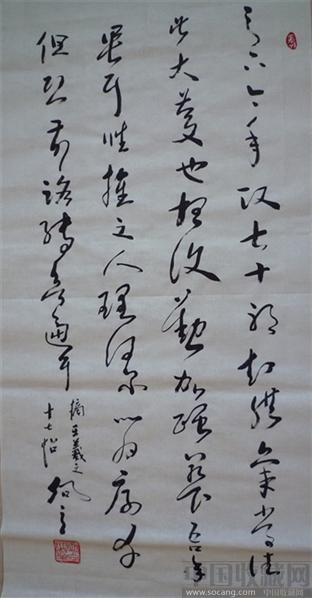 足下今年政七十耶知體氣常佳
此大慶也想復勤加頤養吾年
垂耳順推之人理得爾以為厚幸
但恐前路轉欲逼耳
摘王羲之
十七帖
中国收藏网
www.socang.com 中国收藏网